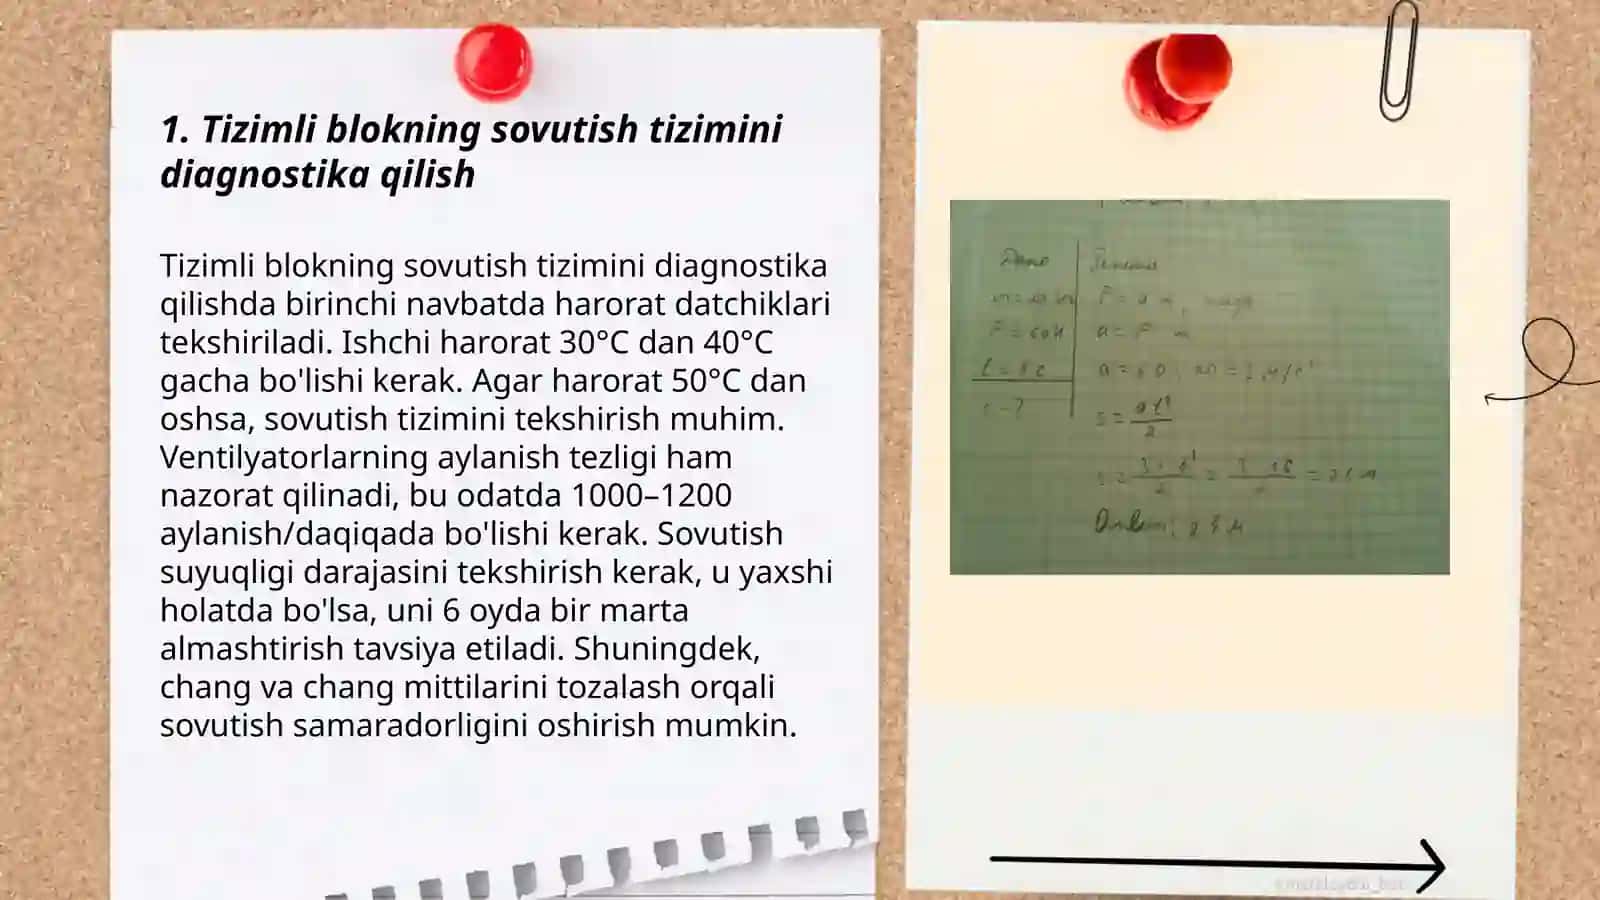 1. Tizimli blokning sovutish tizimini
diagnostika qilish
Tizimli blokning sovutish tizimini diagnostika
qilishda birinchi navbatda harorat datchiklari
tekshiriladi. Ishchi harorat 30°C dan 40°C
gacha bo'lishi kerak. Agar harorat 50°C dan
oshsa, sovutish tizimini tekshirish muhim.
Ventilyatorlarning aylanish tezligi ham
nazorat qilinadi, bu odatda 1000–1200
aylanish/daqiqada bo'lishi kerak. Sovutish
suyuqligi darajasini tekshirish kerak, u yaxshi
holatda bo'lsa, uni 6 oyda bir marta
almashtirish tavsiya etiladi. Shuningdek,
chang va chang mittilarini tozalash orqali
sovutish samaradorligini oshirish mumkin.